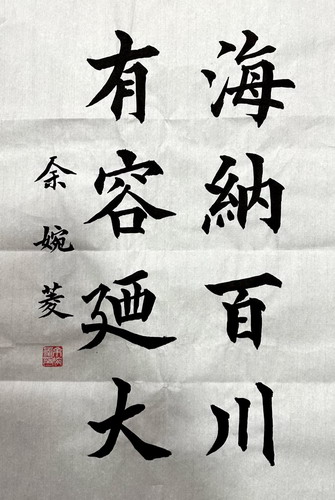 海納百川
有容廼大
余婉菱